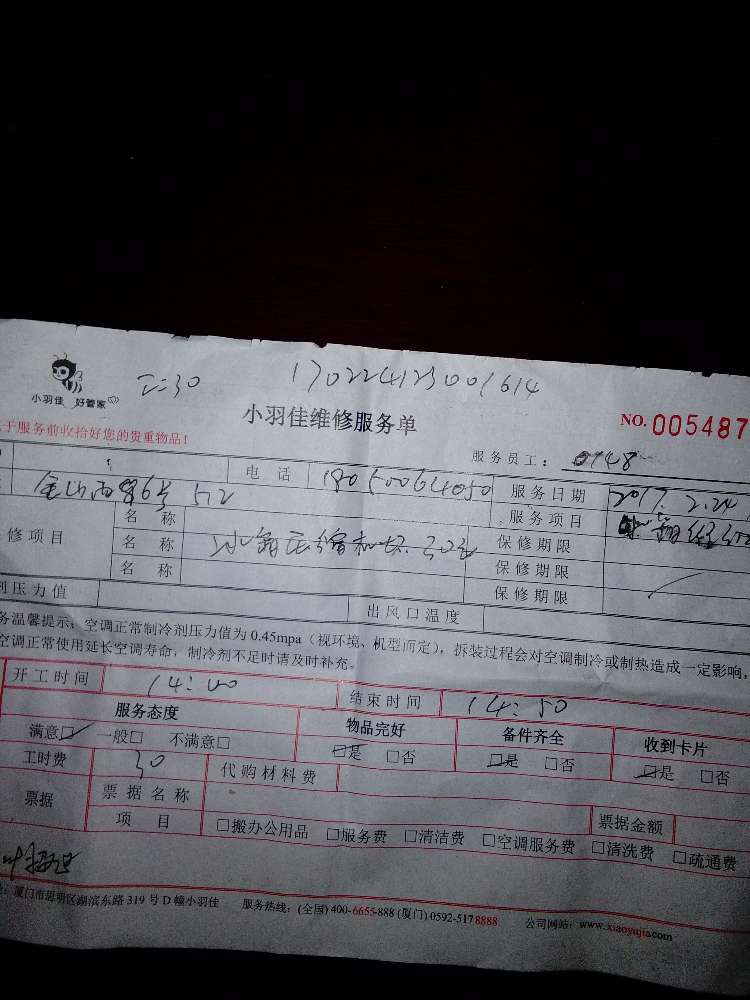 2:30 170224123001614
小羽佳 好管家
小羽佳维修服务单 NO. 005487
于服务前收拾好您的贵重物品！
服务员工： 0748
电 话 18050064050 服务日期 2017.2.24
金山西路6号 512 服务项目
名 称
修项目 名 称 冰箱压缩机坏 30元 保修期限
名 称 保修期限
保修期限
剂压力值 出风口温度
务温馨提示：空调正常制冷剂压力值为 0.45mpa（视环境、机型而定），拆装过程会对空调制冷或制热造成一定影响，
空调正常使用延长空调寿命，制冷剂不足时请及时补充。
开工时间 14:00 结束时间 14:50
服务态度 物品完好 备件齐全 收到卡片
满意□ 一般□ 不满意□ □是 □否 □是 □否 □是 □否
工时费 30 代购材料费
票据 票据名称 票据金额
项 目 □搬办公用品 □服务费 □清洁费 □空调服务费 □清洗费 □疏通费
：厦门市思明区湖滨东路 319 号 D 幢小羽佳 服务热线：(全国) 400-6655-888 (厦门) 0592-5178888 公司网站：www.xiaoyujia.com